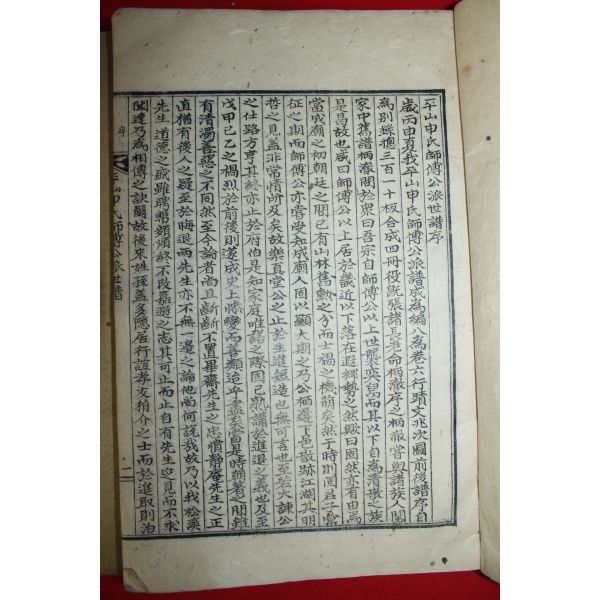 平山申氏師傅公派世譜序
歲丙申夏我平山申氏師傅公派譜成爲編八爲卷六行蹟文兆次圖前後譜序自
爲別錄摠三百一十板合成四冊役旣張諸長老命柄澈序之柄澈嘗與諸族人閱
家中舊譜柄澈問於衆曰吾宗自師傅公以上世襲奕舃而其以下自爲清散之族
是曷故也咸曰師傅公以上居於畿近以下落在遐鄉勢之然歟曰固然亦有由焉
當成廟之初朝廷之間已有山林舊勳之分而士禍之機萌矣然于時則國君子當
征之期而師傅公亦嘗受知成廟人固以顯大期之乃公柄遲下邑散跡江湖其明
哲之見蓋非常情所及矣故樂眞堂公之止於生進短造也無可言也至若大諫公
之仕路方亨其終亦止於府伯是知家庭唯諾之際固已熟講於進退之義也及至
戊甲己乙之禍烈於前後則遂成史上將變而善類造乎盡矣當是時朝著之間雖
有清濁善惡之不同然至今論者尚且齗齗不置畢齋先生之忠憤靜庵先生之正
直猶有後人之疑至於晦退兩先生亦不無一邊之論他尚何說我故乃以我松溪
先生道德之盛雖聘幣頻煩終不改嘉遯之志其可止而止自有先生定見而不求
聞達乃爲相傳之訣爾故後來姓孫蓋多隱居行誼孝友狷介之士而於進取則泊
序
平山申氏師傅公派世譜
一